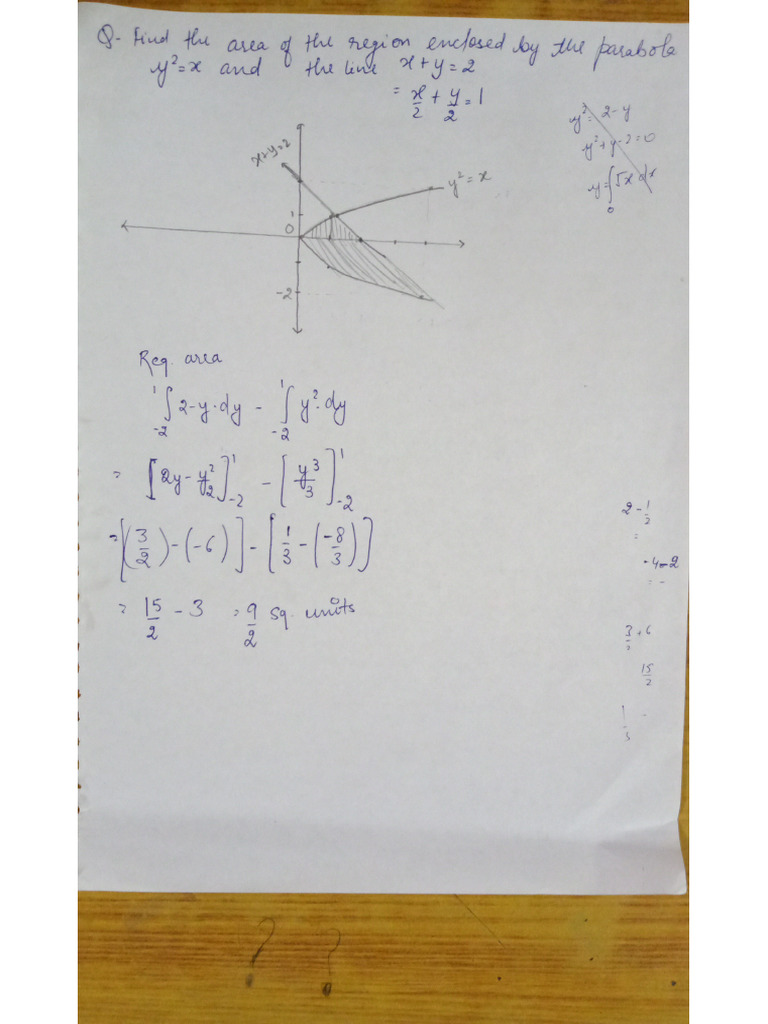 Q- Find the area of the region enclosed by the parabola
y²=x and the line x+y=2
= x/2 + y/2 = 1
y² = 2-y
y²+y-2=0
y=∫₀ √x dx
x+y=2
y²=x
1
0
-2
Req. area
∫₋₂¹ 2-y·dy - ∫₋₂¹ y²·dy
= [2y - y²/2]₋₂¹ - [y³/3]₋₂¹
= [(3/2) - (-6)] - [1/3 - (-8/3)]
= 15/2 - 3 = 9/2 sq. units
2 - 1/2
=
-4-2
= -
3/2 + 6
15/2
1/3 -
? ?